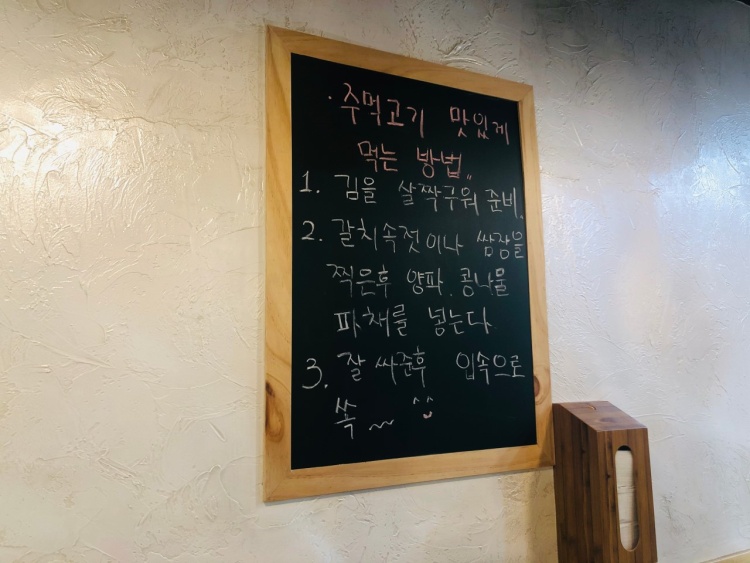 · 주먹고기 맛있게
먹는 방법..
1. 김을 살짝구워 준비.
2. 갈치속젓이나 쌈장을
찍은후 양파. 콩나물
파채를 넣는다.
3. 잘 싸준후 입속으로
쏙~ ^^